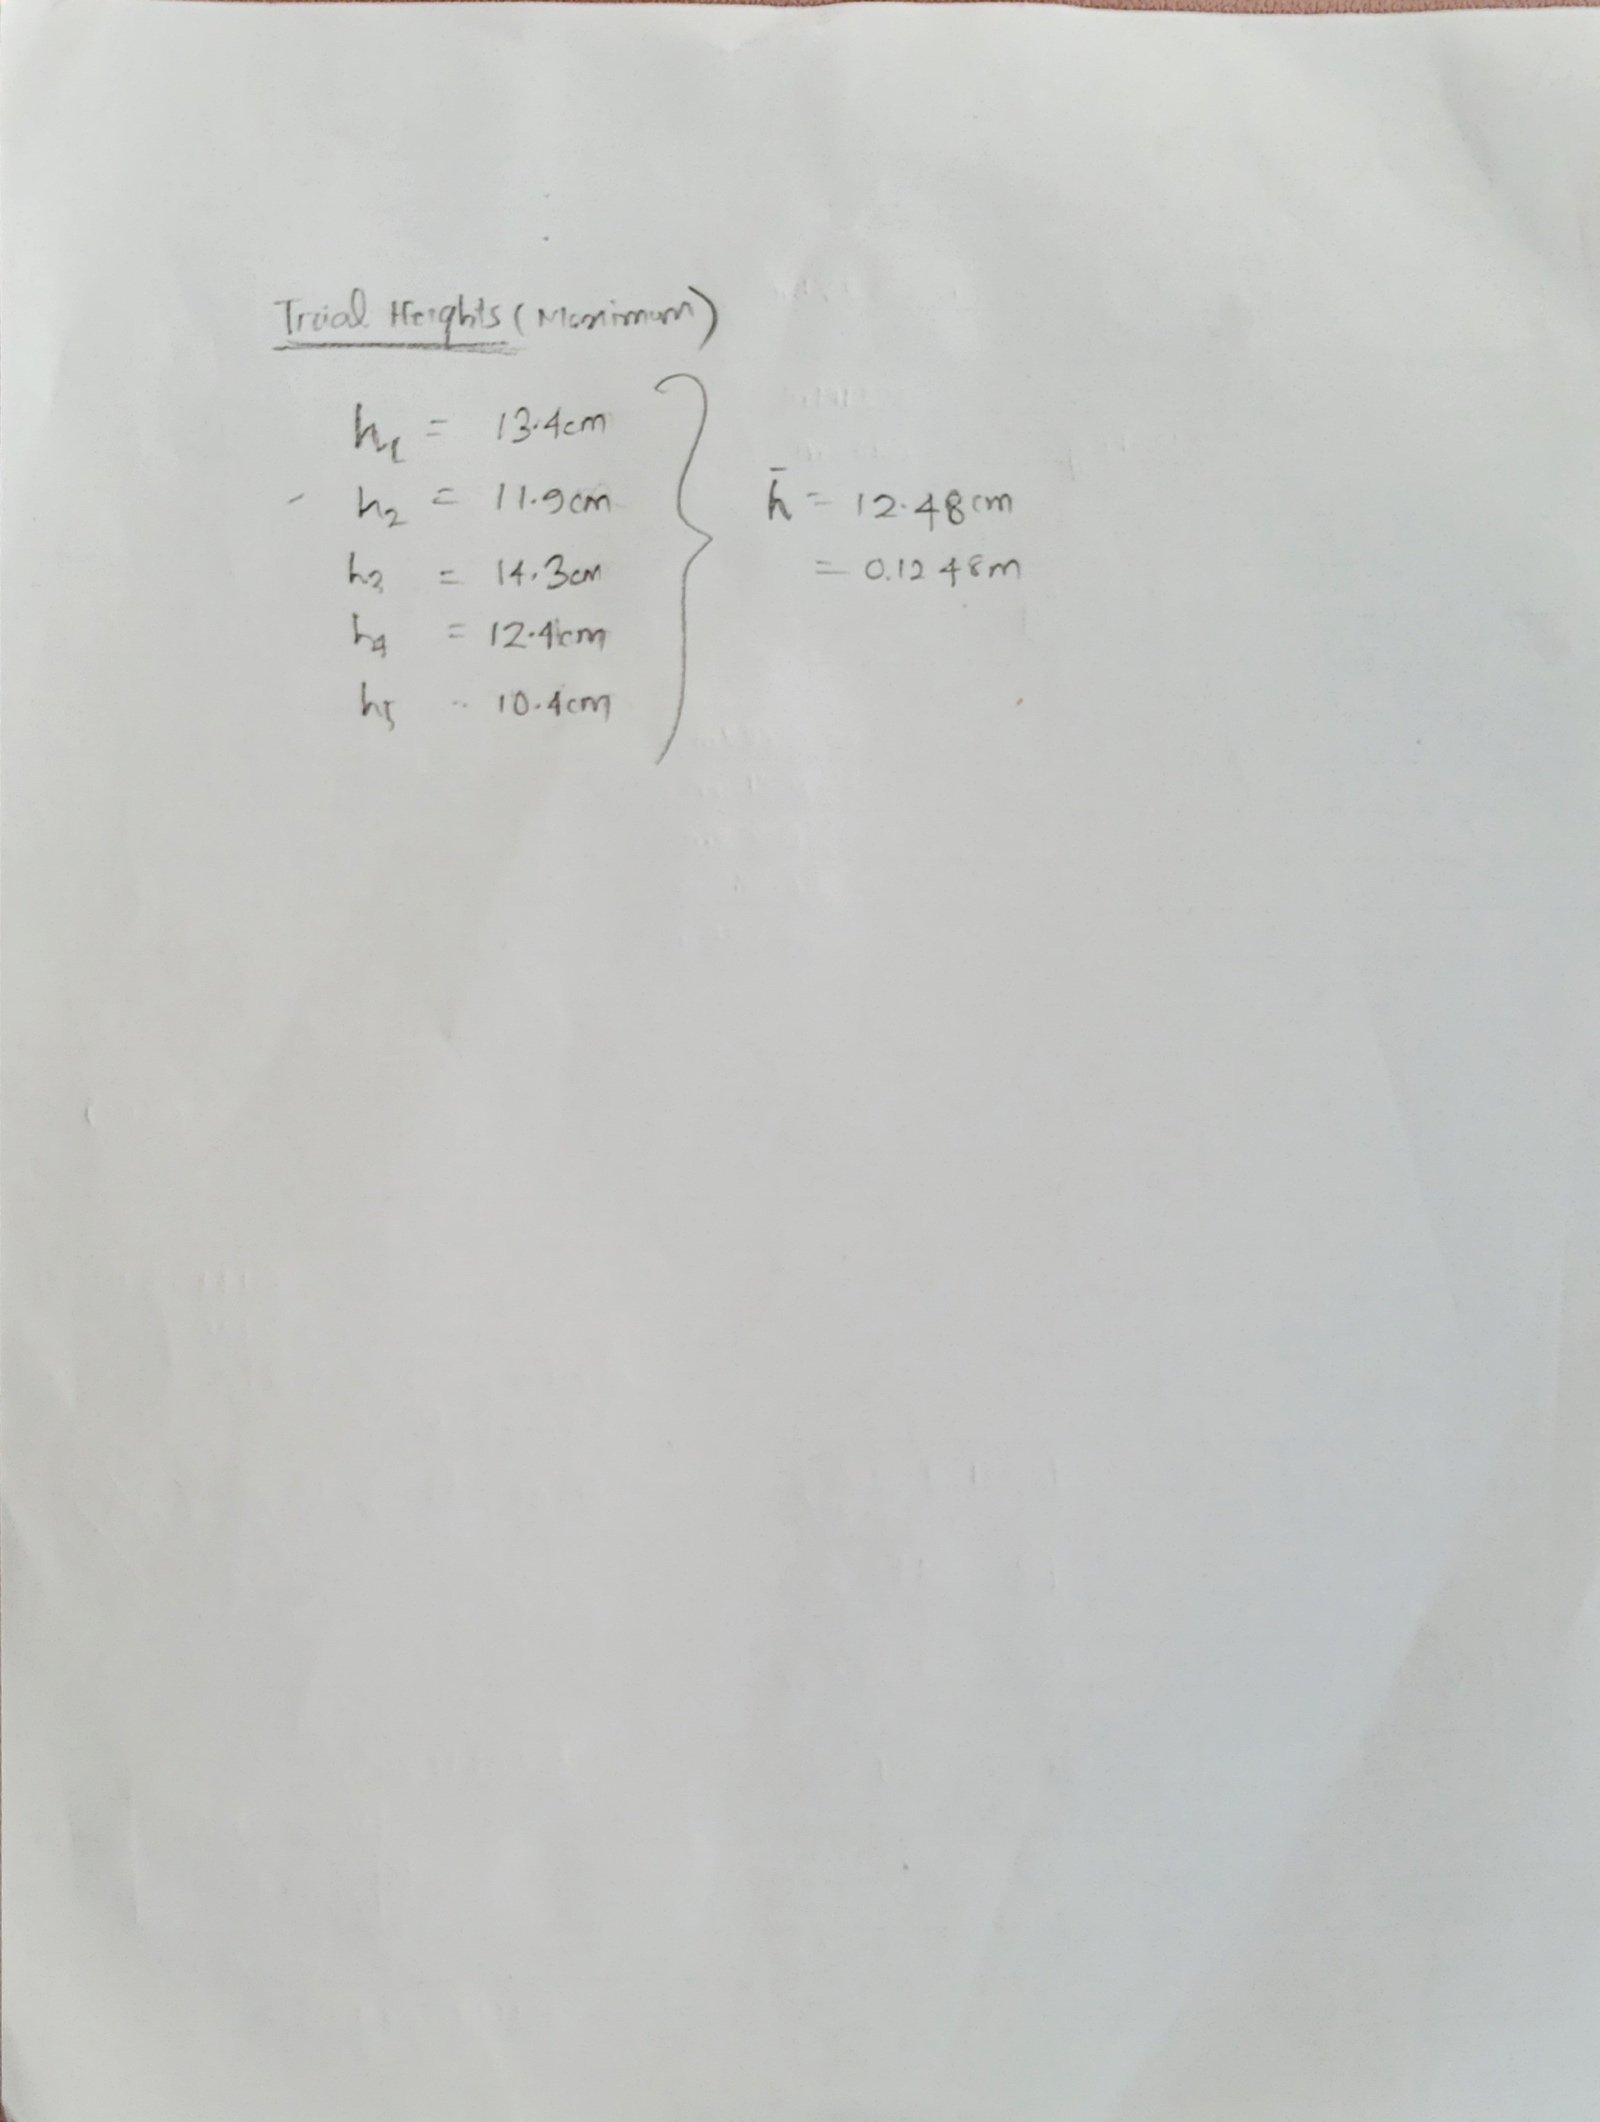 Trial Heights (Maximum)
h₁ = 13.4cm
h₂ = 11.9cm
h₃ = 14.3cm
h₄ = 12.4cm
h₅ = 10.4cm
h̄ = 12.48cm
= 0.1248m